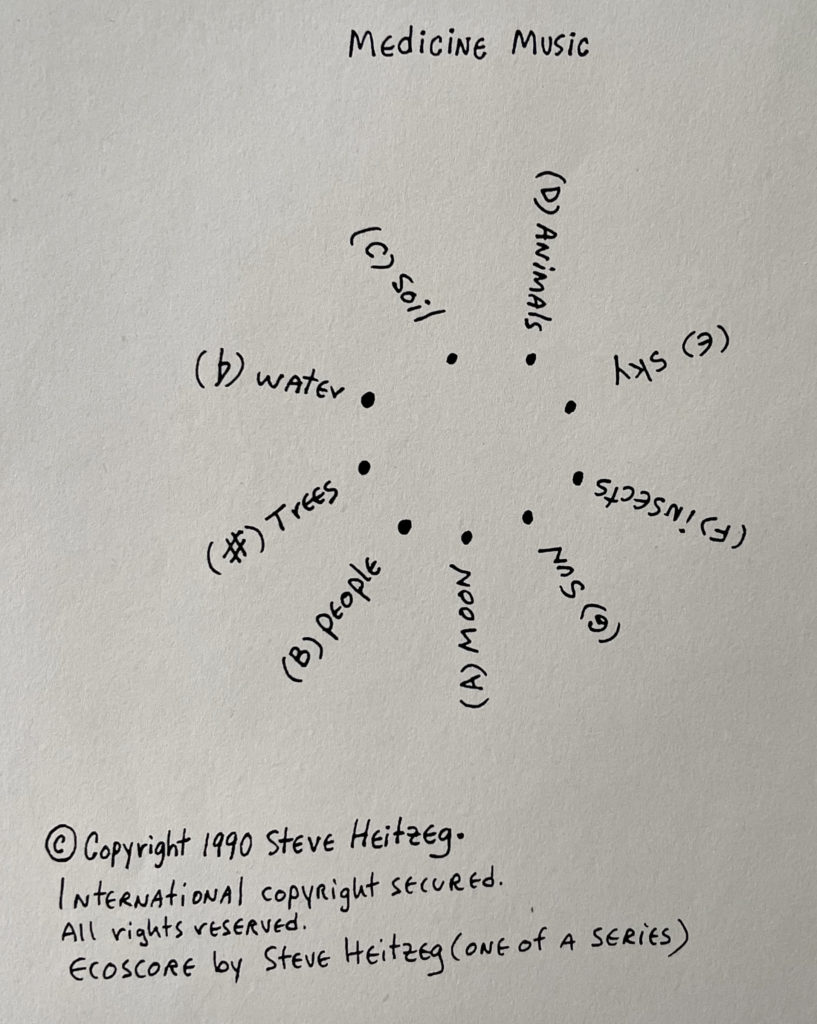 Medicine Music
(D) Animals
(C) Soil
(E) Sky
(b) water
(F) insects
(#) Trees
(G) Sun
(B) people
(A) Moon
© Copyright 1990 Steve Heitzeg.
International copyright secured.
All rights reserved.
Ecoscore by Steve Heitzeg (one of a series)